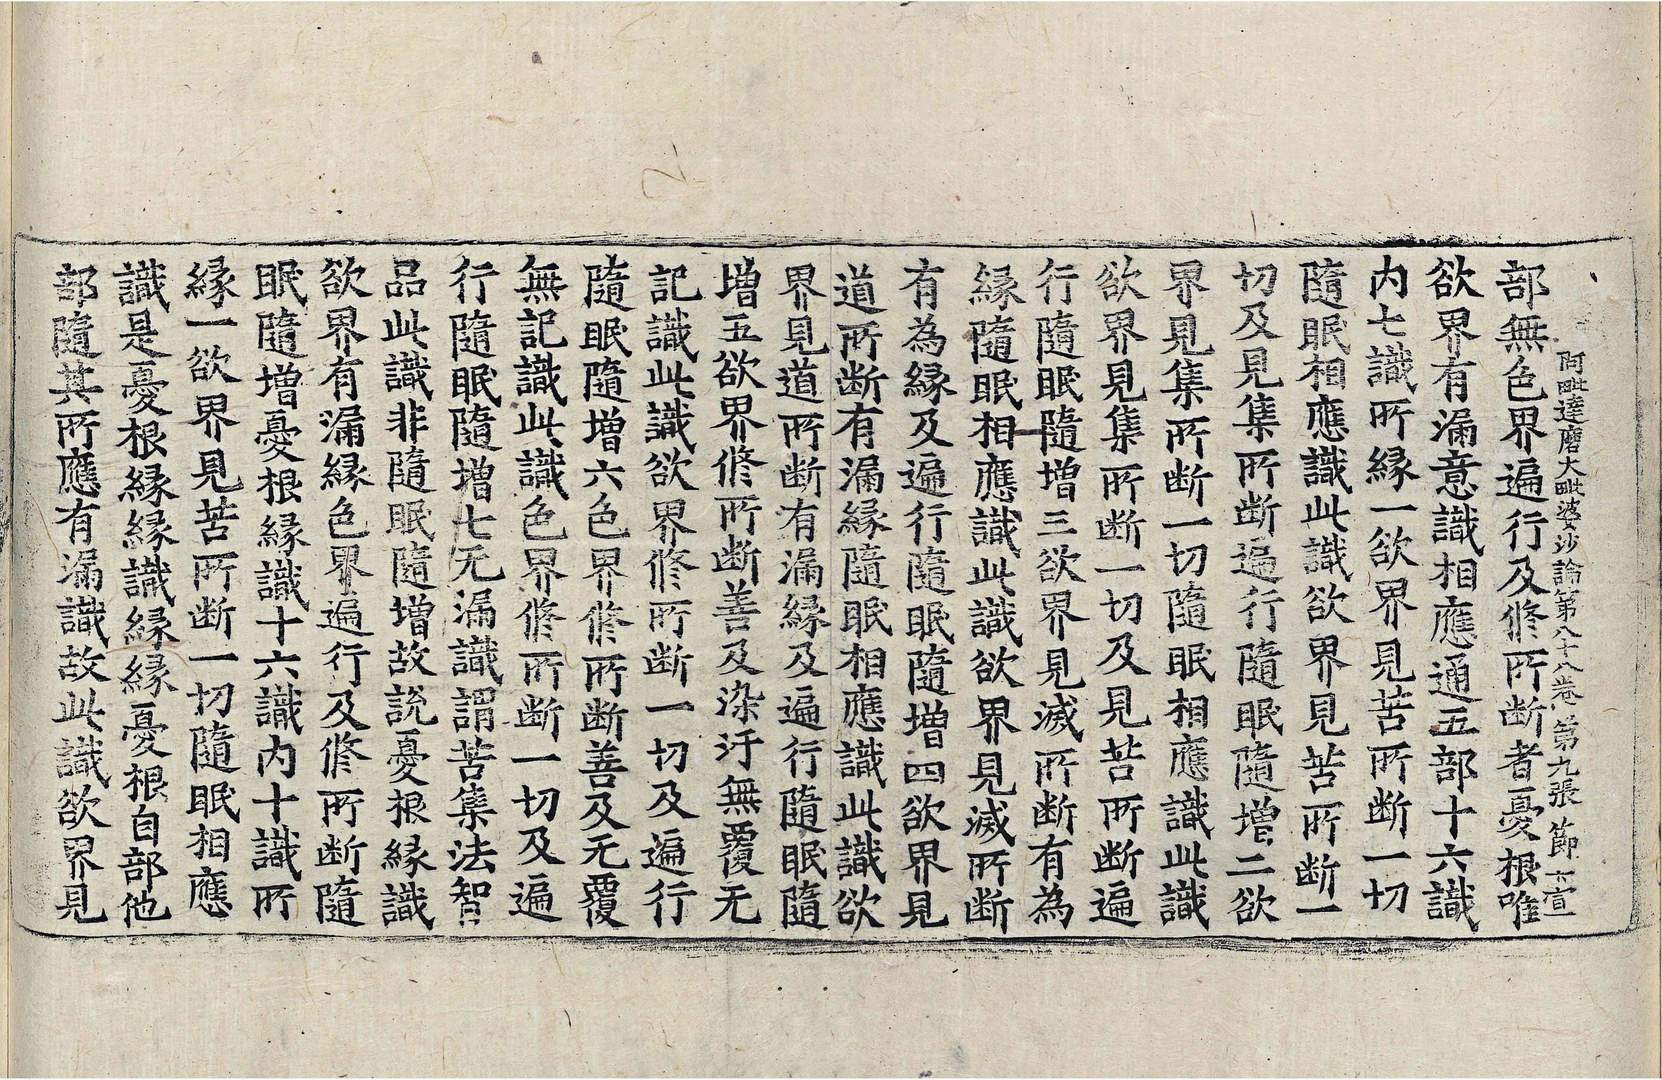 阿毗達磨大毗婆沙論第八十八卷 第九張 節 宣一
部無色界遍行及修所断者憂根唯
欲界有漏意識相應通五部十六識
内七識所縁一欲界見苦所断一切
隨眠相應識此識欲界見苦所断一
切及見集所断遍行隨眠隨增二欲
界見集所断一切隨眠相應識此識
欲界見集所断一切及見苦所断遍
行隨眠隨增三欲界見滅所断有為
縁隨眠相應識此識欲界見滅所断
有為縁及遍行隨眠隨增四欲界見
道所断有漏縁隨眠相應識此識欲
界見道所断有漏縁及遍行隨眠隨
增五欲界修所断善及染汙無覆无
記識此識欲界修所断一切及遍行
隨眠隨增六色界修所断善及无覆
無記識此識色界修所断一切及遍
行隨眠隨增七无漏識謂苦集法智
品此識非隨眠隨增故說憂根縁識
欲界有漏縁色界遍行及修所断隨
眠隨增憂根縁識十六識内十識所
縁一欲界見苦所断一切隨眠相應
識是憂根縁縁識縁縁憂根自部他
部隨其所應有漏識故此識欲界見